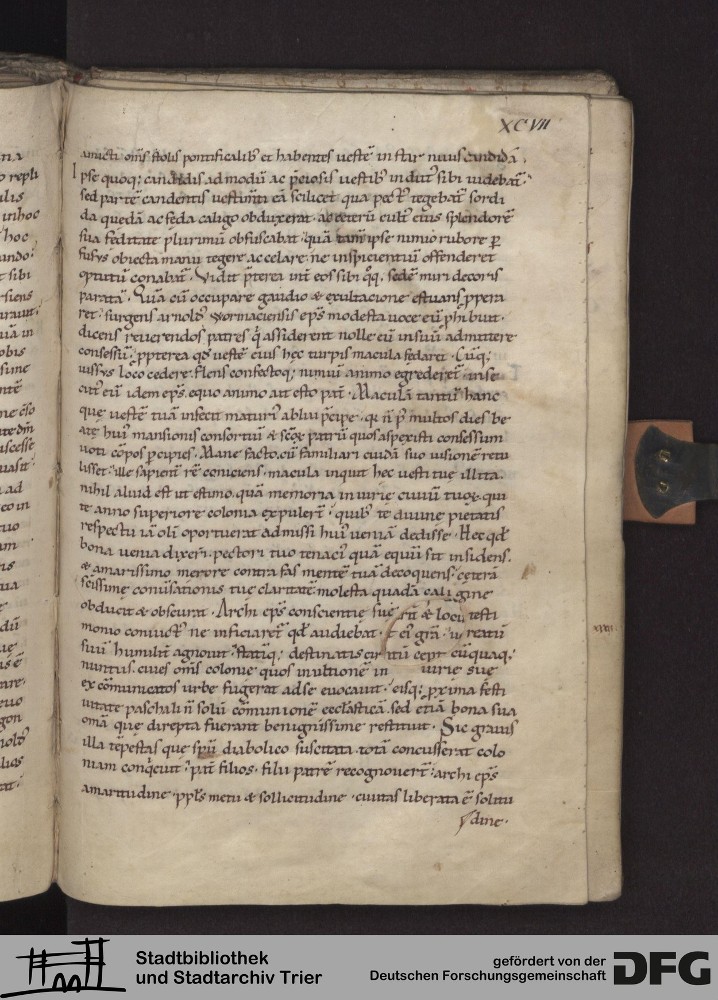 XCVII
amicti om̄s stolis pontificalib; et habentes uestē instar niuis candidā.
Ipse quoq; candidis admodū ac p̄ciosis uestib; indui sibi uidebat̄.
sed partē candentis uestim̄ti eā scilicet qua pect; tegebat̄ sordi
da quedā ac feda caligo obduxerat. ac ceterū cult; eius splendorē
sua feditate plurimū obfuscabat. quā tam̄ ipse nimio rubore p̲
fusus obiecta manu tegere ac celare. ne inspicientiū offenderet
optutū conabat̄. Vidit p̄terea int̄ eos sibi q̊q; sedē miri decoris
paratā. Quā cū occupare gaudio & exultacione estuans ppera
ret. surgens arnold; wormaciensis ep̄s modesta uoce eū phibuit.
dicens reuerendos patres q̇ assiderent nolle eū in suū admittere
consessū. ppterea qđ uestē eius hec turpis macula fedaret. Cūq;
iussus loco cedere. flens confestoq; nimiū animo egrederet̄. inse
cut; eū idem ep̄s. equo animo ait esto pat̄. Maculā tantū hanc
que uestē tuā infecit matur; ablui p̄cipe. qꝛ n̄ p; multos dies be
atę hui; mansionis consortiū & scōꝝ patrū quos aspexisti consessum
uoti cōpos pcipies. Mane facto. cū familiari cuidā suo uisionē retu
lisset. ille sapient̄ rē coniciens. macula inquit hec uesti tue illita.
nihil aliud est ut estimo. quā memoria iniurie ciuiū tuoꝝ. qui
te anno superiore colonia expulert̄. quib; te diuine pietatis
respectu iā olī oportuerat admissi hui; ueniā dedisse. Hec qđ
bona uenia dixeri. pectori tuo tenaci; quā equū sit insidens.
& amarissimo merore contra fas mentē tuā decoquens. ceterā
scīssime conu̇sationis tue claritatē molesta quadā caligine
obducit & obscurat. Archiep̄s conscientie sue
monio conuict; ne inficiaret̄ qđ audiebat.
suū humilit̄ agnouit. Statūq; destinatis
nuntiis. ciues om̄s colonie quos in ultionē iniurie sue
excōmunicatos urbe fugerat ad se euocauit. eisq; pxima festi
uitate paschali n̄ solū cōmunionē eccl̄asticā. sed etiā bona sua
om̄a que direpta fuerant benignissime restituit. Sic grauis
illa tēpestas que spū diabolico suscitata totā concusserat colo
niam conq̇euit. pat̄ filios. filii patrē recognouert̄. archiep̄s
amaritudine. ppl̄s metu & sollicitudine. ciuitas liberata ē solitu
dine.
Stadtbibliothek
und Stadtarchiv Trier
gefördert von der
Deutschen Forschungsgemeinschaft
DFG